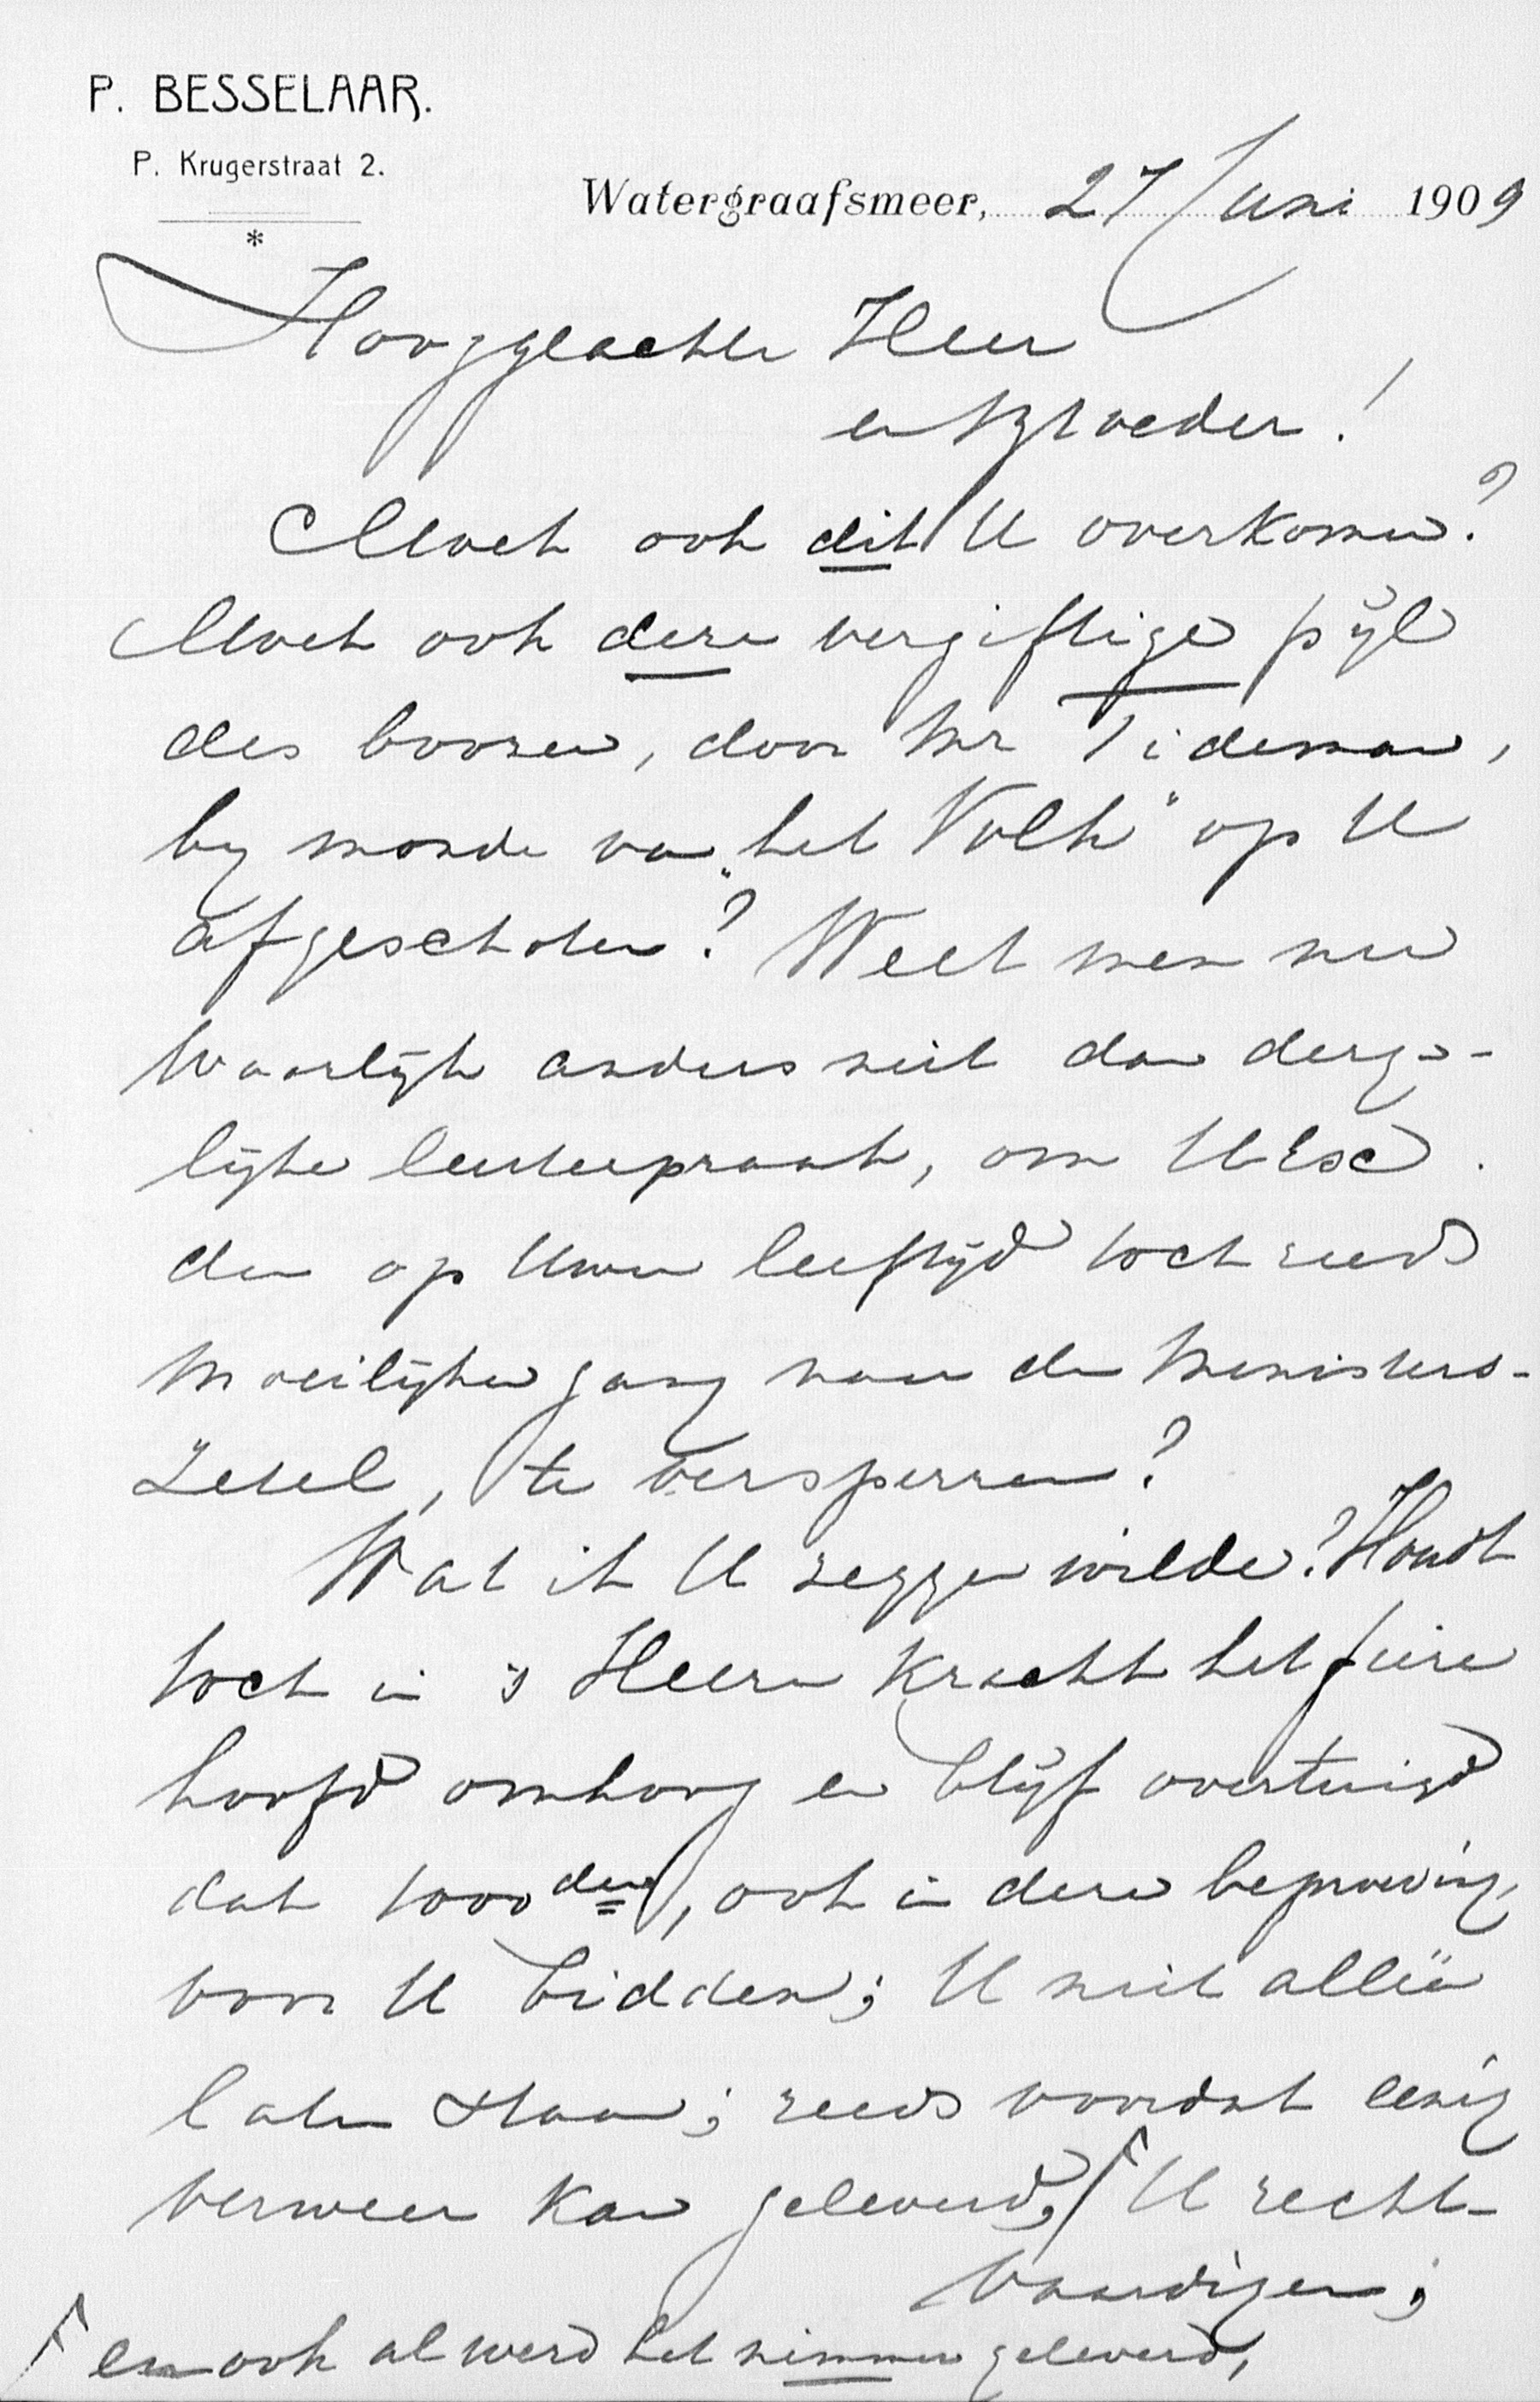 P. BESSELAAR.
P. Krugerstraat 2.
*
Watergraafsmeer, 27 Juni 1909
Hooggeachte Heer
en Broeder!
Moet ook dit U overkomen?
Moet ook deze vergiftige pijl
des boozen, door Mr Tideman,
by monde van „het Volk" op U
afgeschoten? Weet men nu
waarlijk anders niet dan derge-
lijke leuterpraat, om UExc.
den op Uwen leeftijd toch reeds
moeilijken gang naar den Ministers-
zetel, te versperren?
Wat ik U zeggen wilde? Houdt
toch in 's Heeren kracht het fiere
hoofd omhoog en blijf overtuigd
dat 1000den, ook in deze beproeving,
voor U bidden; U niet alleen
laten staan; reeds voordat eenig
verweer kan geleverd, ⌈ U recht-
vaardigen;
⌈ en ook al werd het nimmer geleverd,